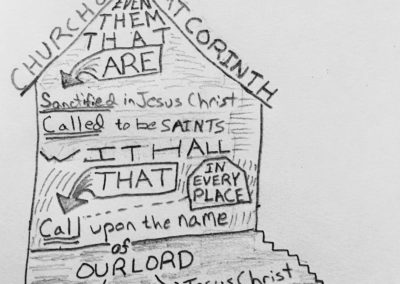 CHURCH
AT CORINTH
EVEN
THEM
THAT
ARE
Sanctified in Jesus Christ
Called to be SAINTS
WITH ALL
THAT
IN
EVERY
PLACE
Call upon the name
of
OUR LORD
Jesus Christ